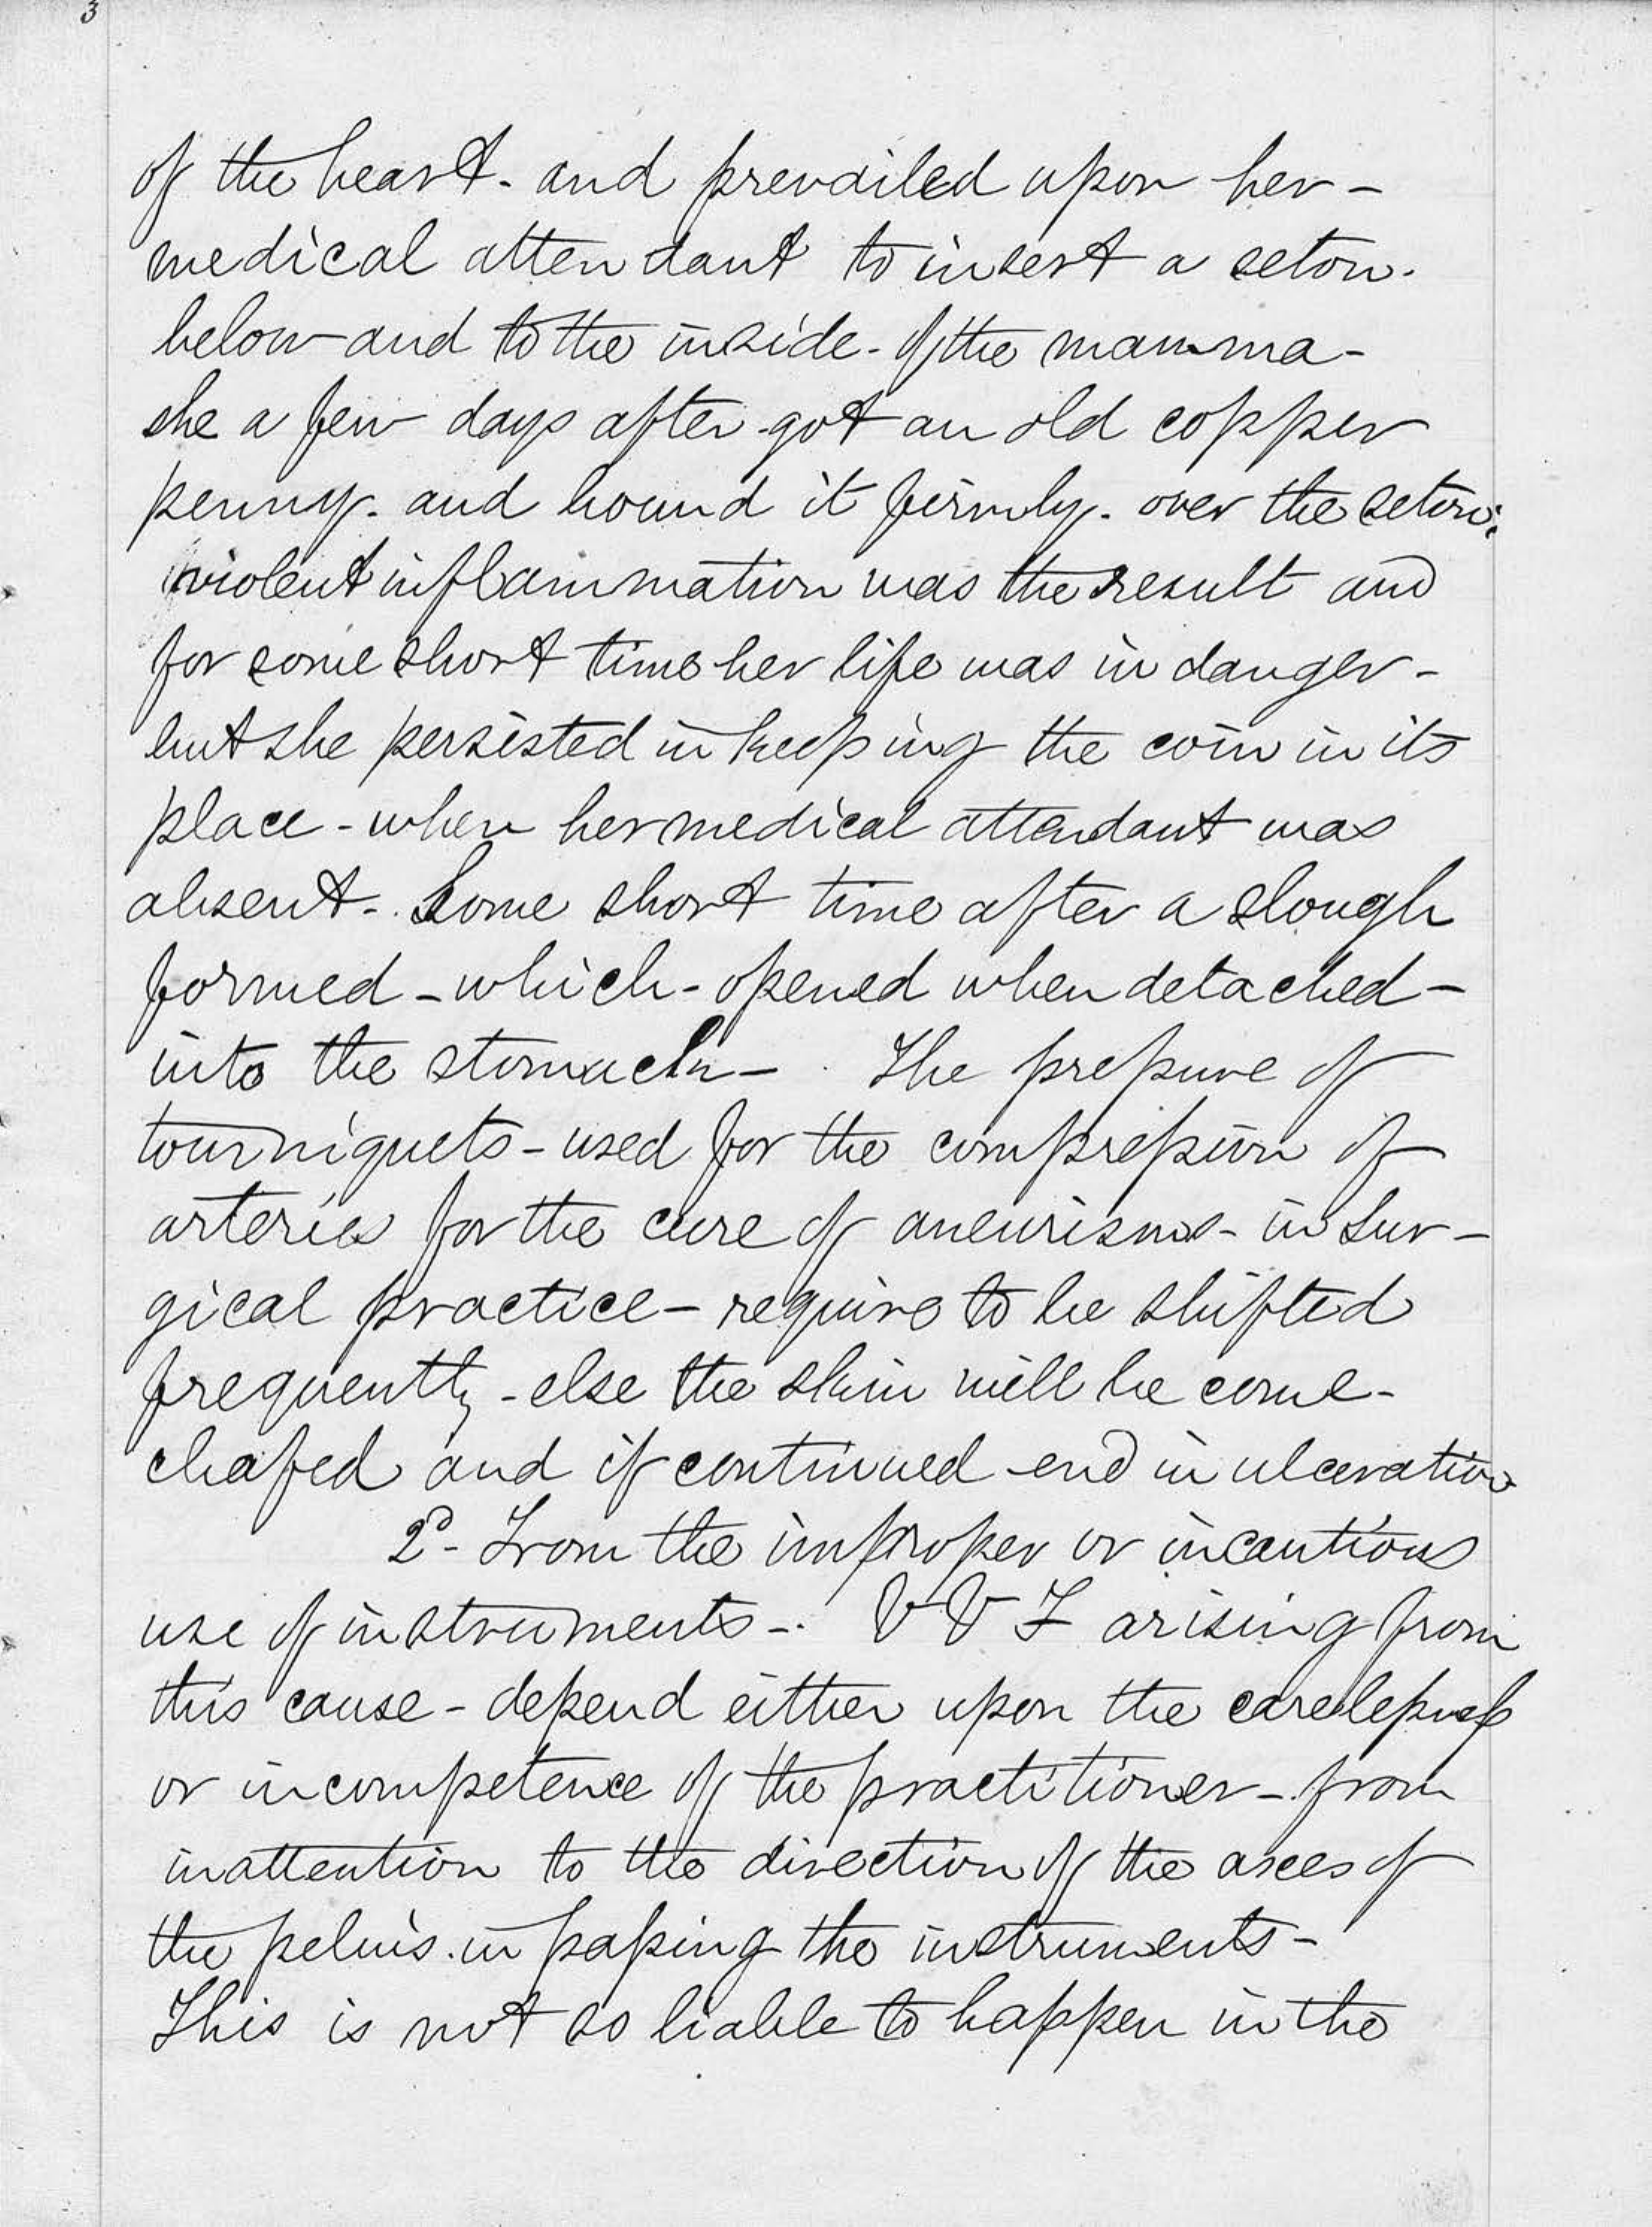 3
of the heart - and prevailed upon her -
medical attendant to insert a seton.
below and to the inside - of the mamma -
she a few days after got an old copper
penny - and bound it firmly - over the seton.
violent inflammation was the result and
for some short time her life was in danger -
but she persisted in keeping the coin in its
place - when her medical attendant was
absent - Some short time after a slough
formed - which - opened when detached -
into the stomach - . The pressure of
tourniquets - used for the compression of
arteries for the cure of aneurisms - in Sur -
gical practice - require to be shifted
frequently - else the skin will be come -
chafed and if continued end in ulceration
2d - From the improper or incautious
use of instruments - . V V F arising from
this cause - depend either upon the carelessness
or incompetence of the practitioner - from
inattention to the direction of the axes of
the pelvis - in passing the instruments -
This is not so liable to happen in the